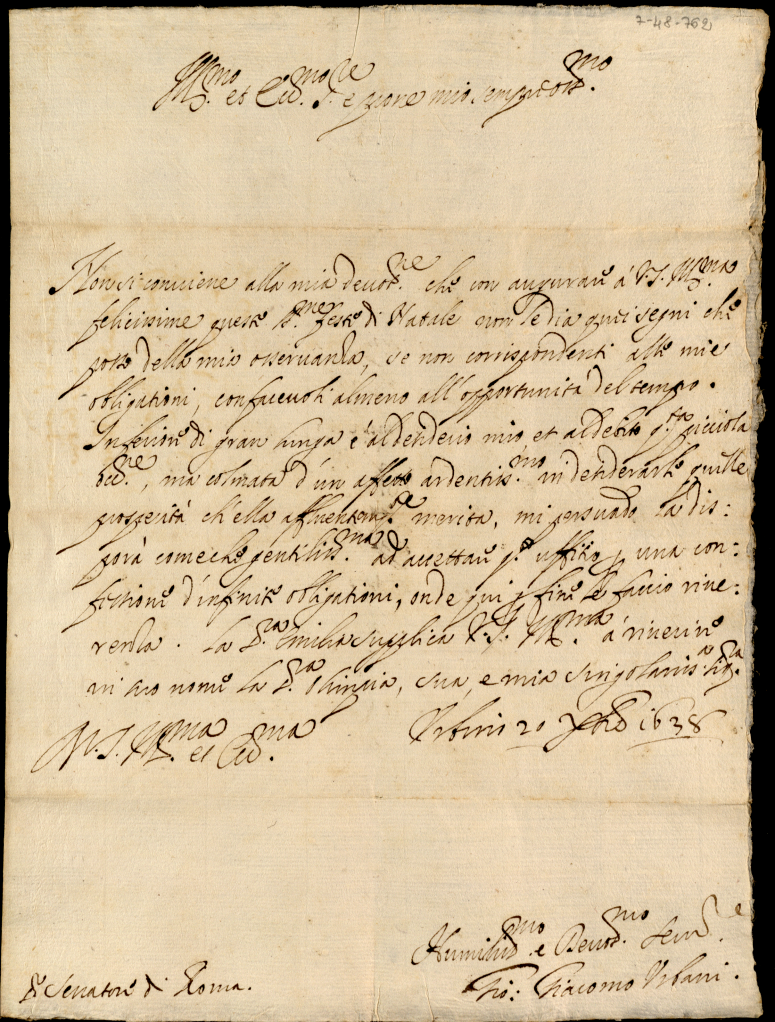 7-48-762
Ill.mo et Ecc.mo S.re e prone mio sempre oss.mo
Non si conviene alla mia devot.ne che con augurare à V.S. Ill.ma
felicissime queste S.me feste di Natale non le dia quei segni che
posso della mia osservanza, se non corrispondenti alle mie
obligationi, confacevoli almeno all'opportunità del tempo.
Inferiore di gran lunga è al desiderio mio, et al debito q.ta picciola
, ma colmata d'un affetto ardentiss.mo in desiderarle quelle
prosperità ch'ella affluentem.te merita, mi persuado la dis:
porà come che gentiliss.ma ad accettare q.o uffitio p una con:
fessione d'infinite obligationi, onde qui p fine le faccio rive:
renza. La S.ra Emilia supplica V.S. Ill.ma à riverire
in suo nome la S.ra Olimpia, sua, e mia singolariss.a Sig.ra
Urbino 20 Xbre 1638
D.V.S. Ill.ma et Ecc.ma
Humiliss.mo e Devot.mo Serv.e
Gio: Giacomo Urbani.
S.r Senatore di Roma.